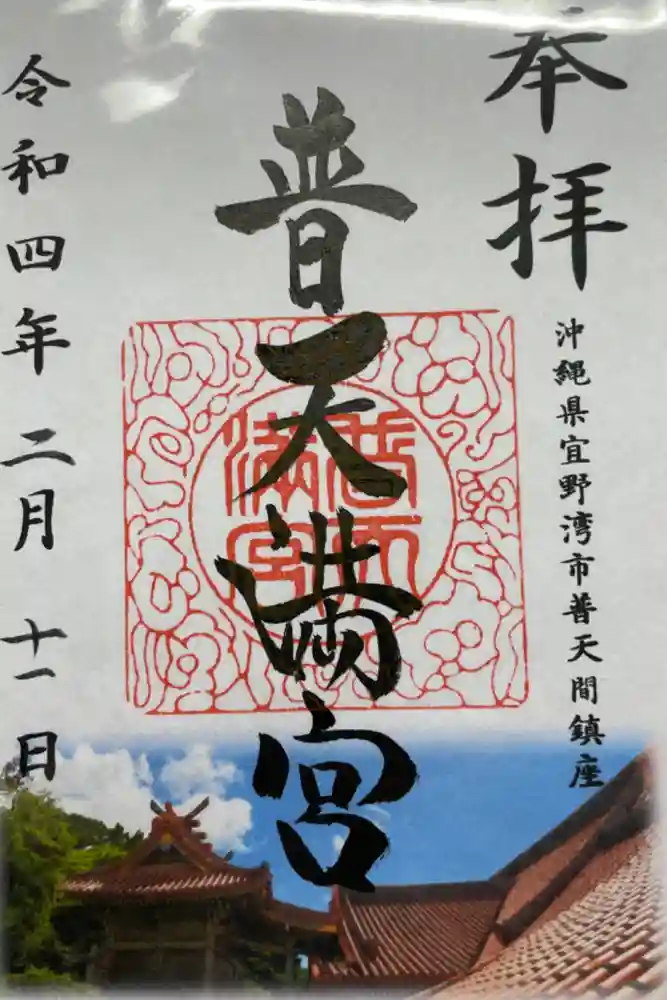 奉拝
沖縄県宜野湾市普天間鎮座
普天満宮
普天満宮
令和四年二月十一日